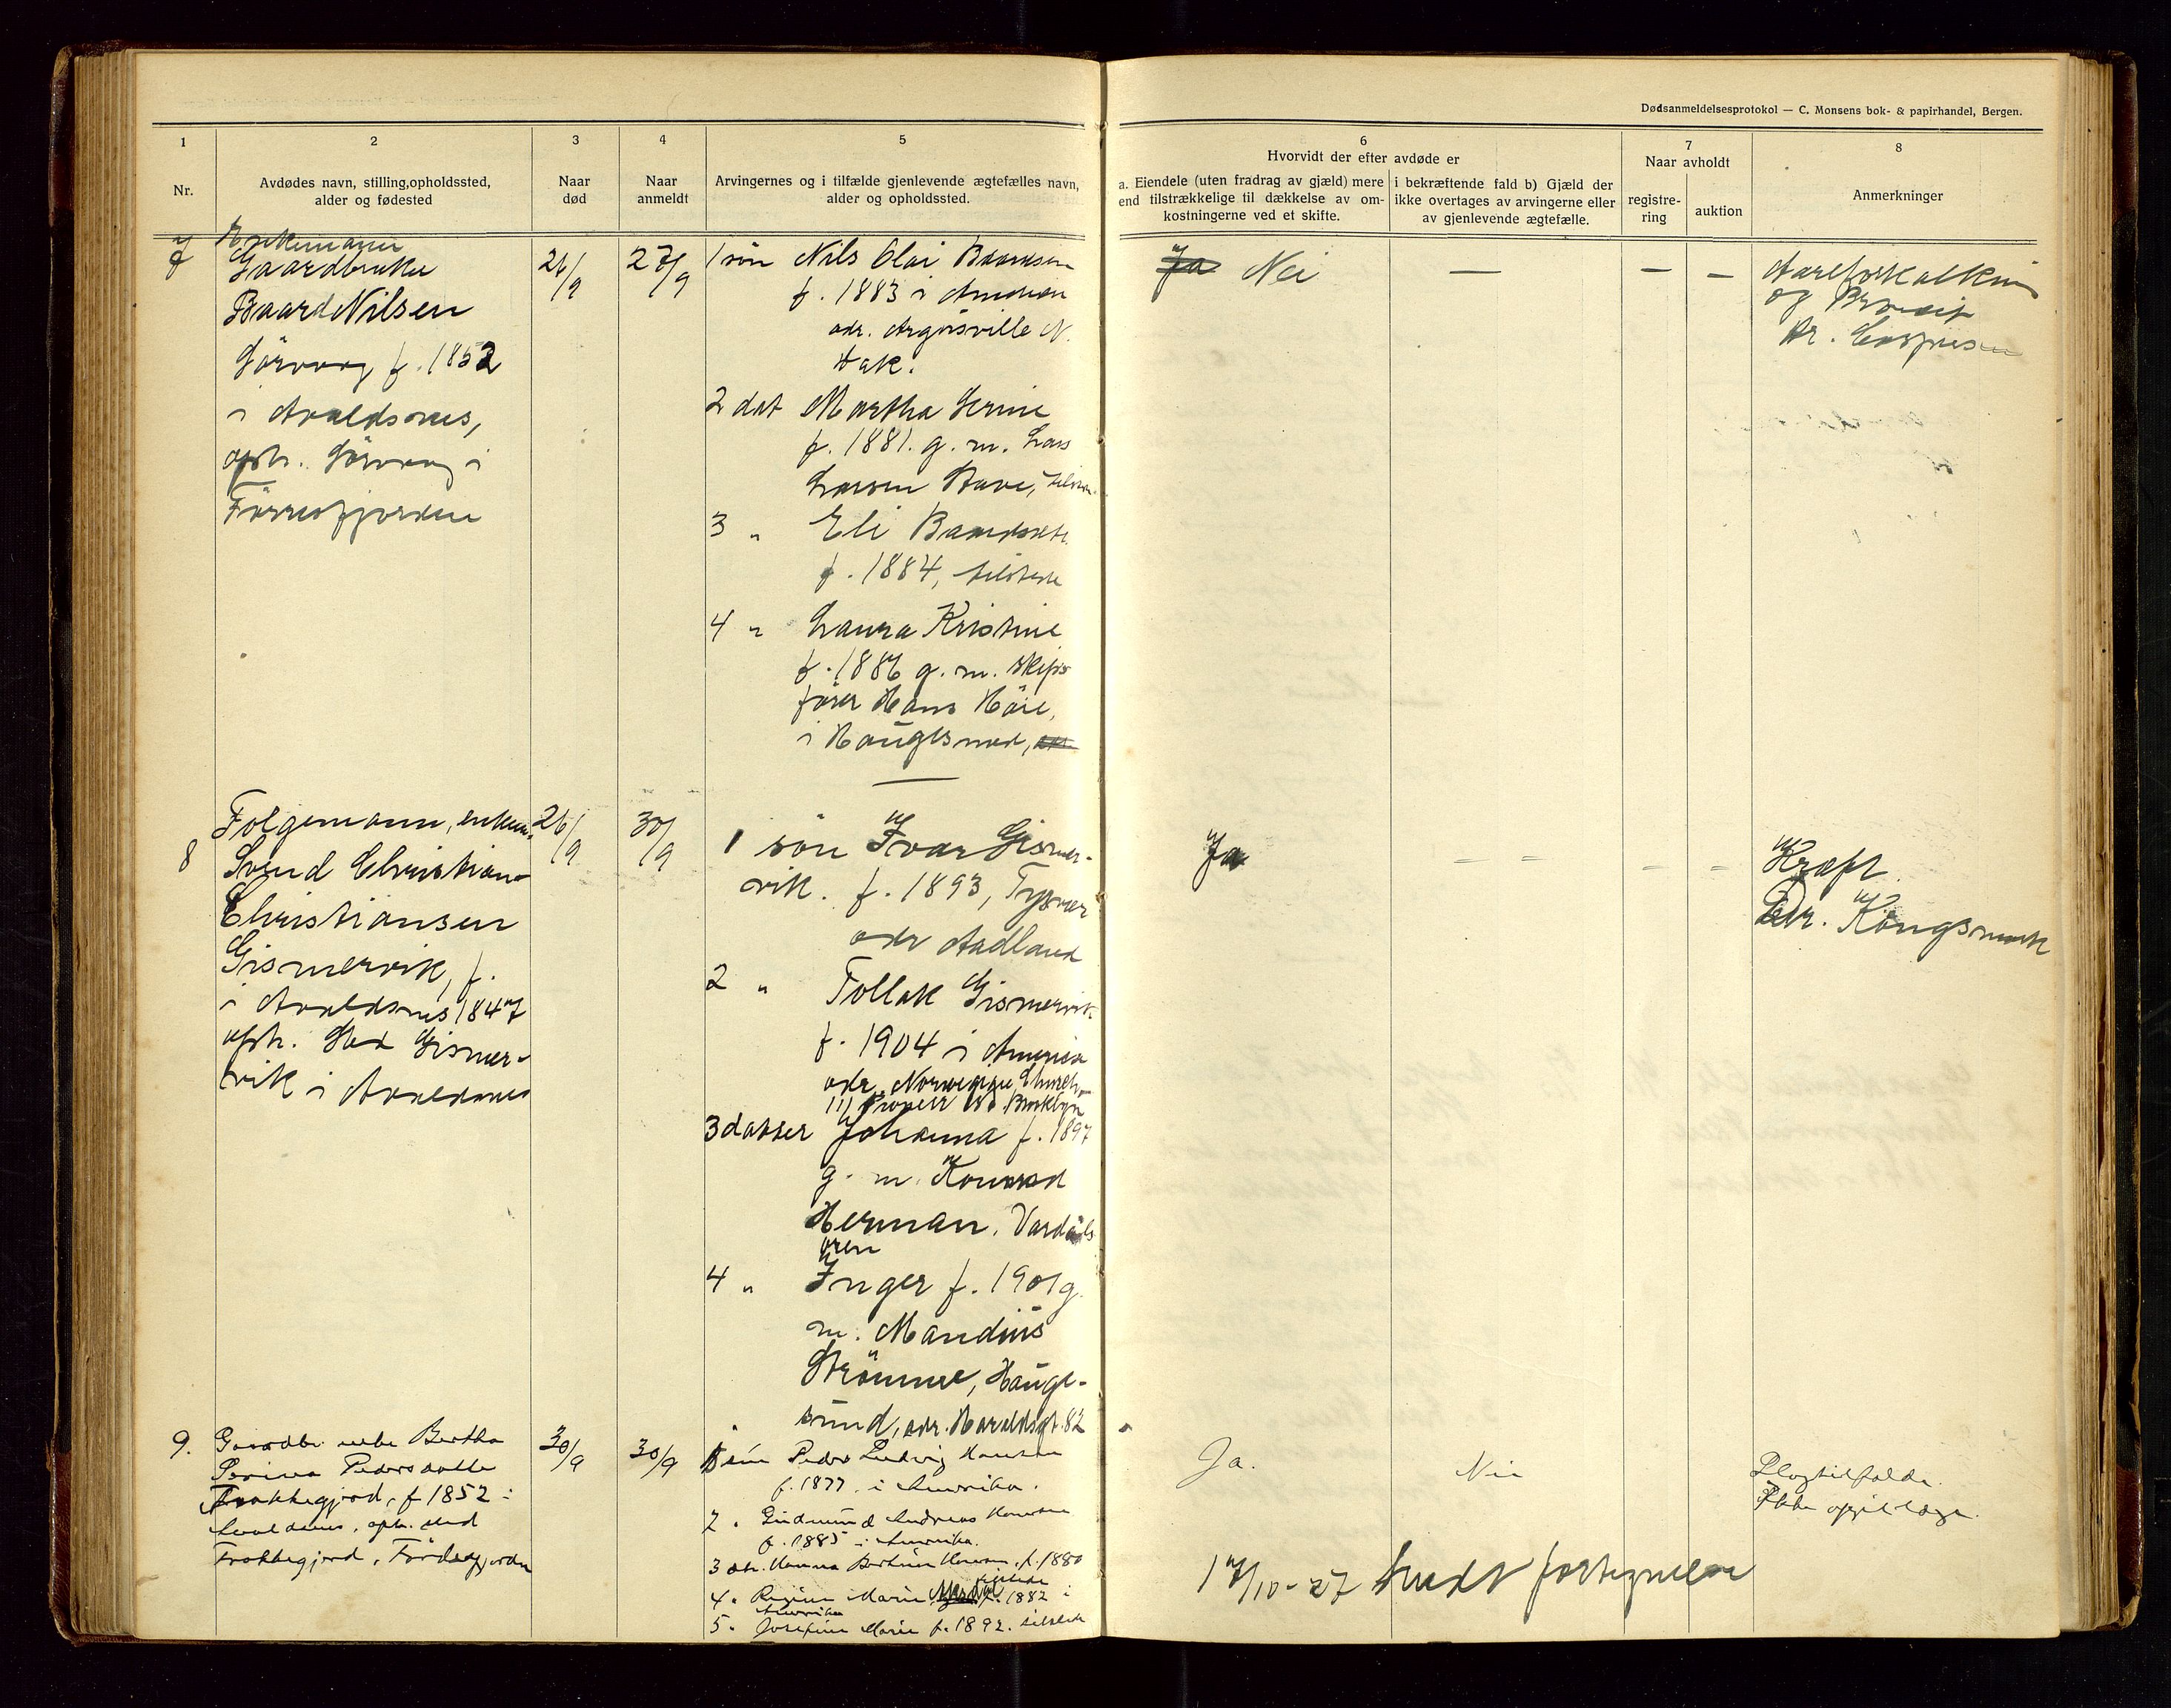 Dødsanmeldelsesprotokol — C. Monsens bok- & papirhandel, Bergen.
1
Nr.
2
Avdødes navn, stilling, opholdssted,
alder og fødested
3
Naar
død
4
Naar
anmeldt
5
Arvingernes og i tilfælde gjenlevende ægtefælles navn,
alder og opholdssted.
6
Hvorvidt der efter avdøde er
a. Eiendele (uten fradrag av gjæld) mere
end tilstrækkelige til dækkelse av om-
kostningerne ved et skifte.
i bekræftende fald b) Gjæld der
ikke overtages av arvingerne eller
av gjenlevende ægtefælle.
7
Naar avholdt
registre-
ring
auktion
8
Anmerkninger
7
Enkemann
Gaardbruker
Baard Nilsen
f. 1852
i Avaldsnes,
opsh. i
Førresfjorden
26/9
27/9
1 søn Nils Olai Baardsen
f. 1883 i Amerika
adr. N.
Dak.
2 dat Martha Serine
f. 1881. g. m. Lars
Larsen Stave,
3 " Eli Baardsdtr
f. 1884, tilstede
4 " Laura Kristine
f. 1886 g. m. skips
fører Hans
i Haugesund,
Ja Nei
—
—
—
Aareforkalkning
og
dr.
8
Folgemann, enkem.
Svend Christian
Christiansen
Gismervik, f.
i Avaldsnes 1847
opsh. Sted Gismer-
vik i Avaldsnes
26/9
30/9
1 søn Ivar Gismer-
vik. f. 1893, Tysvær
adr Aadland
2 " Tollak Gismervik
f. 1904 i Amerika
adr. Norwegian Church
111 Brooklyn
3 datter Johanna f. 1897
g. m. Konrad
Herman, Vardals
øren
4 " Inger f. 1901 g.
m. Mandius
Strømme, Hauge-
sund, adr. Haraldsgt. 82
Ja
Kræft
Dr. Kongsmark
9.
Gaardbr. enke Bertha
Perina Pedersdatter
Frakkegjerd, f 1852 i
Avaldsnes, oph. sted
Frakkegjerd, Førdesfjorden
30/9
30/9
1 søn Peder Ludvig Hansen
f. 1877. i Amerika.
2 " Gudmund Andreas Hansen
f. 1885 i Amerika.
3 dtr. Hanna Bertine Hansen. f. 1880
tilstede
4 " Regine Marie f. 1882 i
Amerika
5 " Josefine Marie f. 1892. tilstede
Ja.
Nei
Slagtilfælde.
Ikke opgit læge.
17/10-27 Sendt fortegnelse